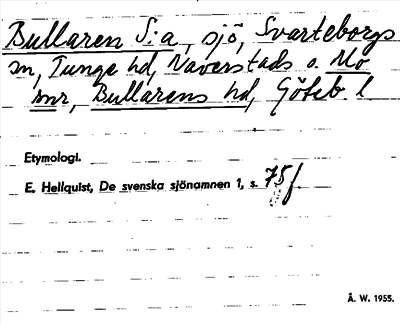 Bullaren S:a, sjö, Svarteborgs
sn, Tunge hd, Naverstads o. Mo
snr, Bullarens hd, Göteb. l
Etymologi.
E. Hellquist, De svenska sjönamnen 1, s. 75f.
Å. W. 1955.